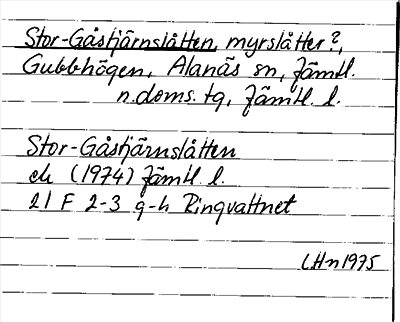 Stor-Gåstjärnslåtten, myrslåtter?,
Gubbhögen, Alanäs sn, Jämtl.
n. doms. tg, Jämtl. l.
Stor-Gåstjärnslåtten
ek (1974) Jämtl. l.
21 F 2-3 g-h Ringvattnet
LHn 1975